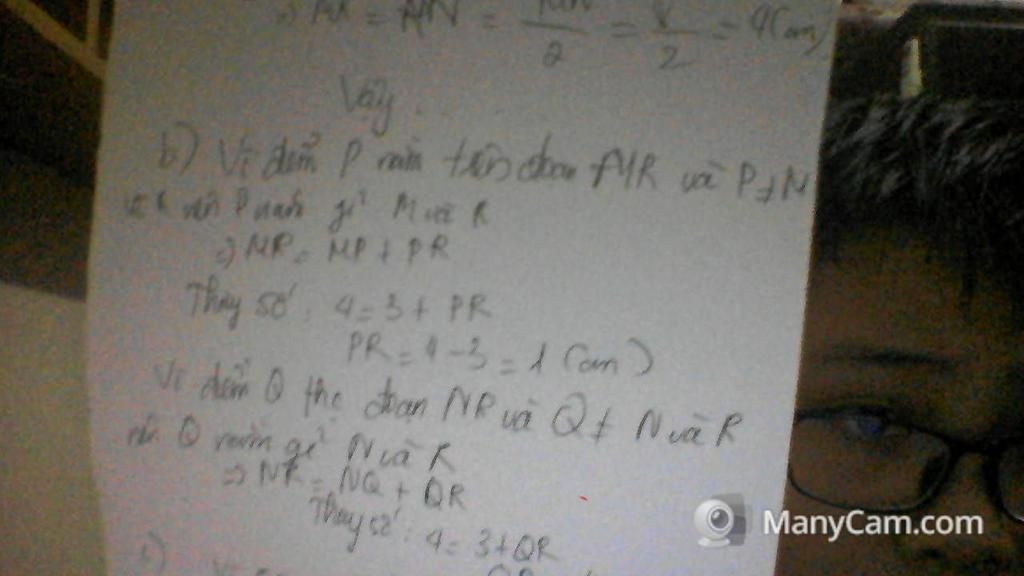 = = 8/2 = 4(cm)
Vậy . . .
b) Vì điểm P nằm trên đoạn MR và P ≠ M
và R nên P nằm giữa M và R
=> MR = MP + PR
Thay số : 4 = 3 + PR
PR = 4 - 3 = 1 (cm)
Vì điểm Q thuộc đoạn NR và Q ≠ N và R
nên Q nằm giữa N và R
=> NR = NQ + QR
Thay số : 4 = 3 + QR
c) Vì
QR
ManyCam.com